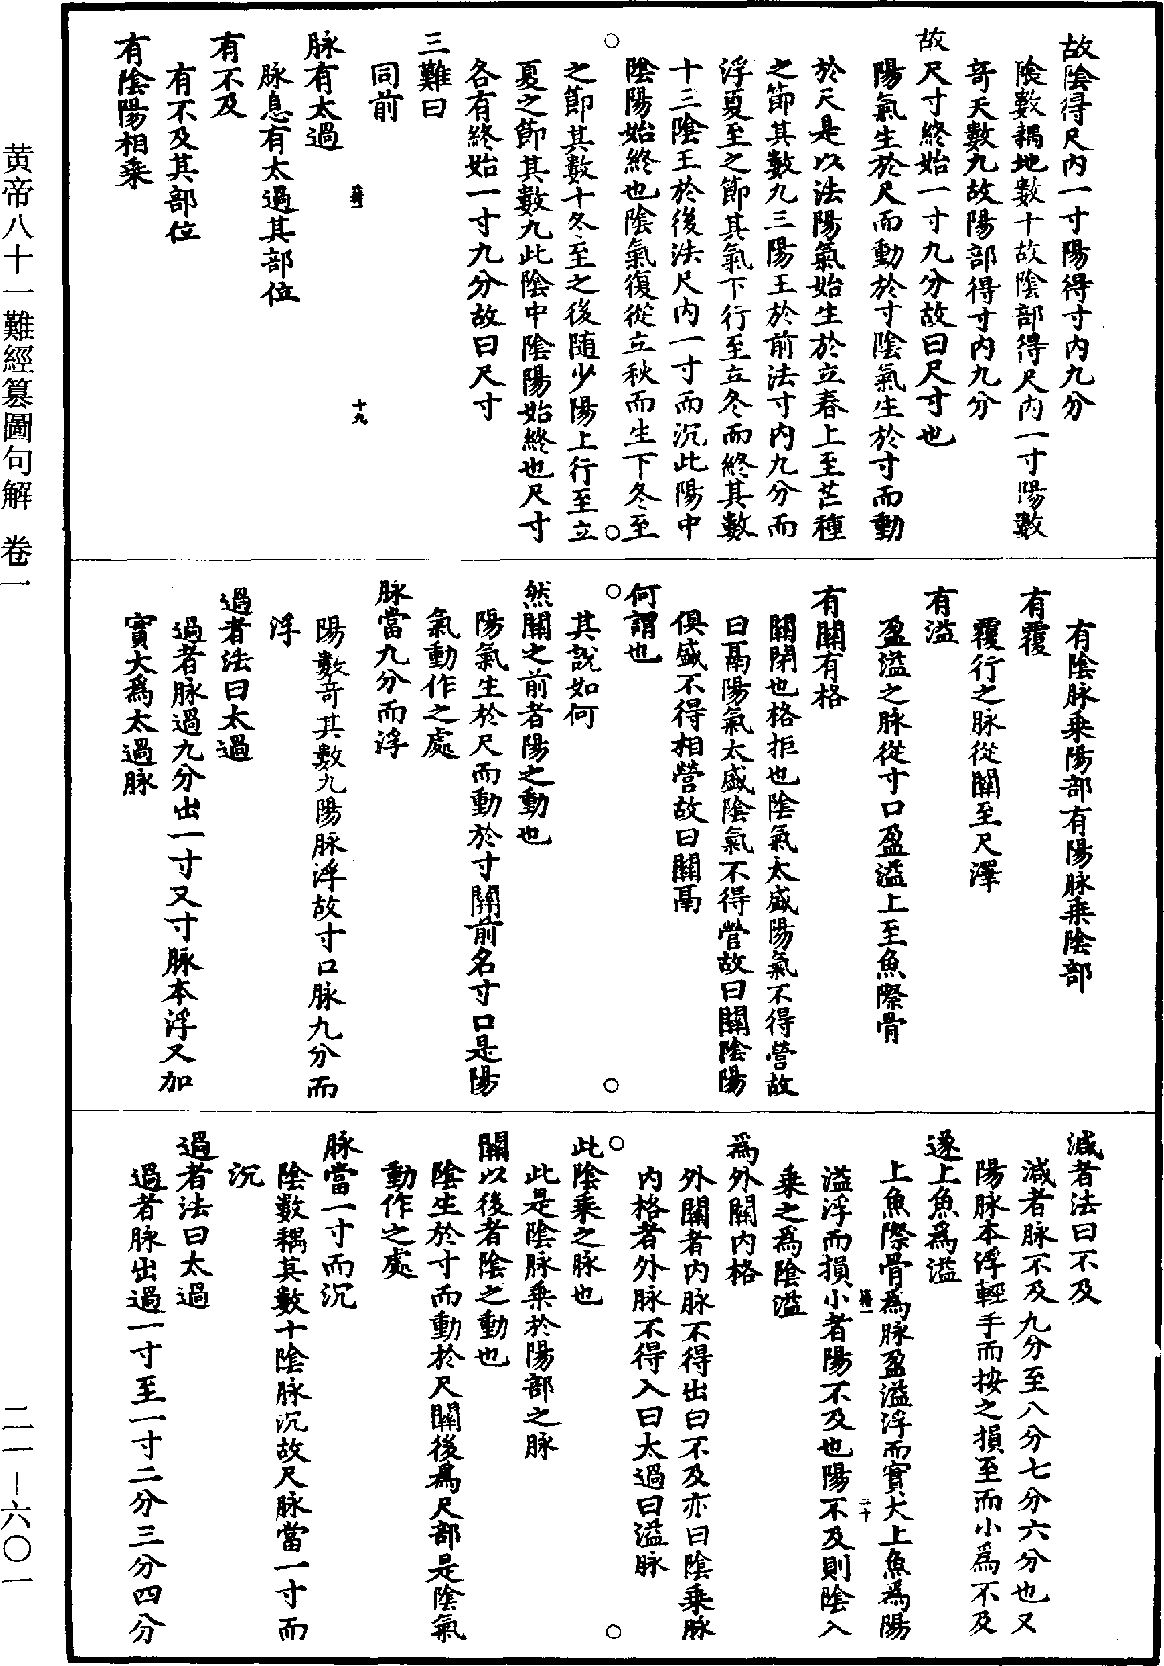 故陰得尺內一寸陽得寸內九分
陰數耦地數十故陰部得尺內一寸陽數
奇天數九故陽部得寸內九分
故尺寸終始一寸九分故曰尺寸也
陽氣生於尺而動於寸陰氣生於寸而動
於尺是以法陽氣始生於立春上至芒種
之節其數九三陽王於前法寸內九分而
浮夏至之節其氣下行至立冬而終其數
十三陰王於後法尺內一寸而沉此陽中
陰陽始終也陰氣復從立秋而生下冬至
之節其數十冬至之後隨少陽上行至立
夏之節其數九此陰中陰陽始終也尺寸
各有終始一寸九分故曰尺寸
三難曰
同前
十九
脉有太過
脉息有太過其部位
有不及
有不及其部位
有陰陽相乘
有陰脉乘陽部有陽脉乘陰部
有覆
覆行之脉從關至尺澤
有溢
盈溢之脉從寸口盈溢上至魚際骨
有關有格
關閉也格拒也陰氣太盛陽氣不得營故
曰鬲陽氣太盛陰氣不得營故曰關陰陽
俱盛不得相營故曰關鬲
何謂也
其說如何
然關之前者陽之動也
陽氣生於尺而動於寸關前名寸口是陽
氣動作之處
脉當九分而浮
陽數奇其數九陽脉浮故寸口脉九分而
浮
過者法曰太過
過者脉過九分出一寸又寸脉本浮又加
實大爲太過脉
減者法曰不及
減者脉不及九分至八分七分六分也又
陽脉本浮輕手而按之損至而小爲不及
遂上魚爲溢
上魚際骨爲脉盈溢浮而實大上魚爲陽
二十
溢浮而損小者陽不及也陽不及則陰入
乘之爲陰溢
爲外關內格
外關者內脉不得出曰不及亦曰陰乘脉
內格者外脉不得入曰太過曰溢脉
此陰乘之脉也
此是陰脉乘於陽部之脉
關以後者陰之動也
陰生於寸而動於尺關後爲尺部是陰氣
動作之處
脉當一寸而沉
陰數耦其數十陰脉沉故尺脉當一寸而
沉
過者法曰太過
過者脉出過一寸至一寸二分三分四分
黄帝八十一難經篡圖句解　卷一
二一－六〇一